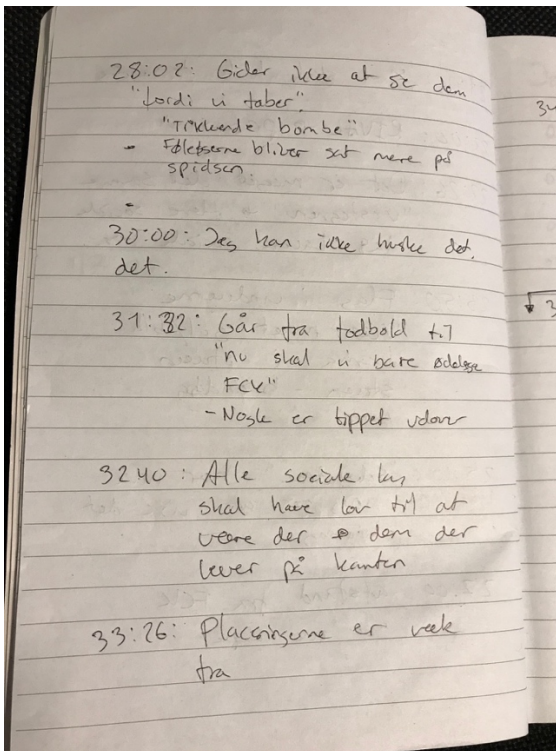 28:02: Gider ikke at se dem
"fordi vi taber".
"Tikkende bombe"
- Følelserne bliver sat mere på
spidsen
-
30:00: Jeg kan ikke huske det.
det.
31:32: Går fra fodbold til
"nu skal vi bare ødelægge
FCK"
- Nogle er tippet udover
3240: Alle sociale lag
skal have lov til at
være der dem der
lever på kanten
33:26: Placeringerne er væk
fra
34
3